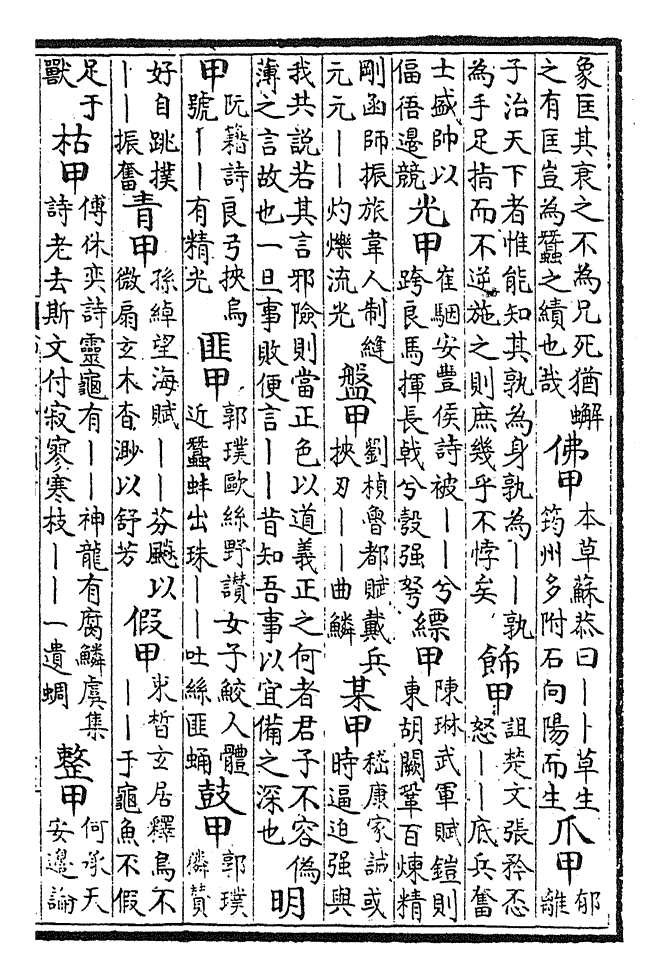 象匡其衰之不為兄死猶蠏
之有匡豈為蠶之績也哉
佛甲
本草蘇恭曰丨丨草生
筠州多附石向陽而生
爪甲
郁
離
子治天下者惟能知其孰為身孰為丨丨孰
為手足指而不逆施之則庶幾乎不悖矣
飾甲
詛楚文張矜忢
怒丨丨底兵奮
士盛帥以
偪俉邊競
光甲
崔駰安豐侯詩被丨丨兮
跨良馬揮長戟兮彀强弩
縹甲
陳琳武軍賦鎧則
東胡闕鞏百煉精
剛函師振旅韋人制縫
元元丨丨灼爍流光
盤甲
劉楨魯都賦戴兵
挾刃丨丨曲鱗
某甲
嵇康家誡或
時逼迫强與
我共説若其言邪險則當正色以道義正之何者君子不容偽
薄之言故也一旦事敗便言丨丨昔知吾事以宜備之深也
明
甲
阮籍詩良弓挾烏
號丨丨有精光
匪甲
郭璞歐絲野讚女子鮫人體
近蠶蚌出珠丨丨吐絲匪蛹
鼓甲
郭璞
鱗贊
好自跳撲
丨丨振奮
青甲
孫綽望海賦丨丨芬颷以
微扇玄木杳渺以舒芳
假甲
束晳玄居釋鳥不
丨丨于龜魚不假
足于
獸
枯甲
傅休奕詩靈龜有丨丨神龍有腐鱗虞集
詩老去斯文付寂寥寒枝丨丨一遺蜩
整甲
何承天
安邊論